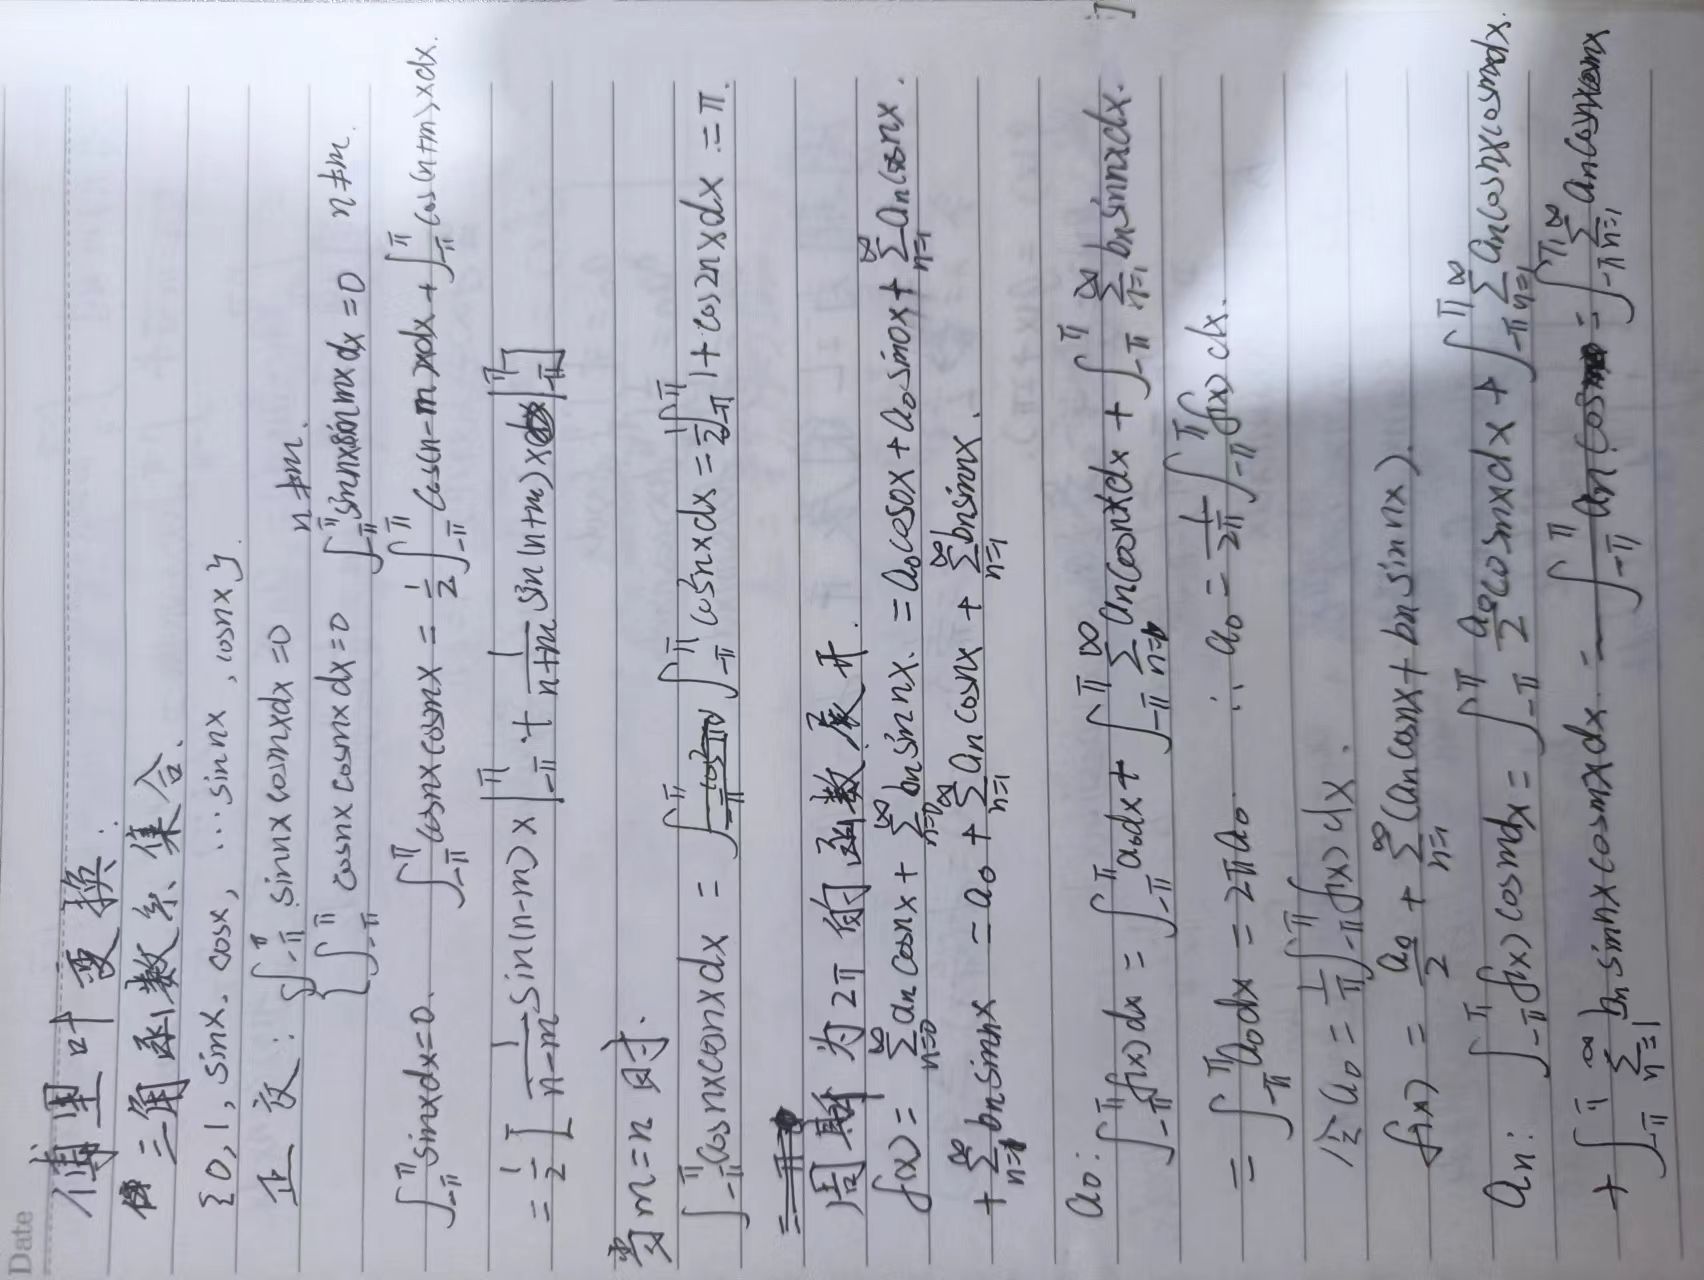 Date
傅里叶变换.
三角函数系集合.
{0, 1, sinx. cosx, … sinnx , cosnx}.
正交: ∫_{-π}^{π} sinnx cosmxdx =0
n≠m.
∫_{-π}^{π} cosnx cosmx dx =0 ∫_{-π}^{π} sinnxsinmx dx =0 n≠m.
∫_{-π}^{π} sinxdx=0. ∫_{-π}^{π} cosnx cosmx = 1/2 ∫_{-π}^{π} cos(n-m)xdx + ∫_{-π}^{π} cos(n+m)xdx.
= 1/2 [ 1/(n-m) sin(n-m)x |_{-π}^{π} + 1/(n+m) sin(n+m)x |_{-π}^{π} ]
当m=n 时.
∫_{-π}^{π} cosnxconxdx = ∫_{-π}^{π} cos²nxdx = 1/2 ∫_{-π}^{π} 1+cos2nxdx = π.
周期为2π的函数展开.
f(x) = ∑_{n=0}^{∞} an cosnx + ∑_{n=0}^{∞} bn sinnx. = a0cos0x + a0 sin0x + ∑_{n=1}^{∞} an cosnx.
+ ∑_{n=1}^{∞} bn sinnx = a0 + ∑_{n=1}^{∞} an cosnx + ∑_{n=1}^{∞} bn sinnx.
a0: ∫_{-π}^{π} f(x) dx = ∫_{-π}^{π} a0dx + ∫_{-π}^{π} ∑_{n=1}^{∞} ancosnxdx + ∫_{-π}^{π} ∑_{n=1}^{∞} bn sinnxdx.
= ∫_{-π}^{π} a0dx = 2πa0. ∴ a0 = 1/2π ∫_{-π}^{π} f(x) dx.
令a0 = 1/π ∫_{-π}^{π} f(x) dx.
f(x) = a0/2 + ∑_{n=1}^{∞} (an cosnx + bn sinnx).
an: ∫_{-π}^{π} f(x) cosmdx = ∫_{-π}^{π} a0/2 cosmxdx + ∫_{-π}^{π} ∑_{n=1}^{∞} an cosnxcosmxdx.
+ ∫_{-π}^{π} ∑_{n=1}^{∞} bn sinnxcosmxdx. = ∫_{-π}^{π} ∑_{n=1}^{∞} an cosnxcosmx